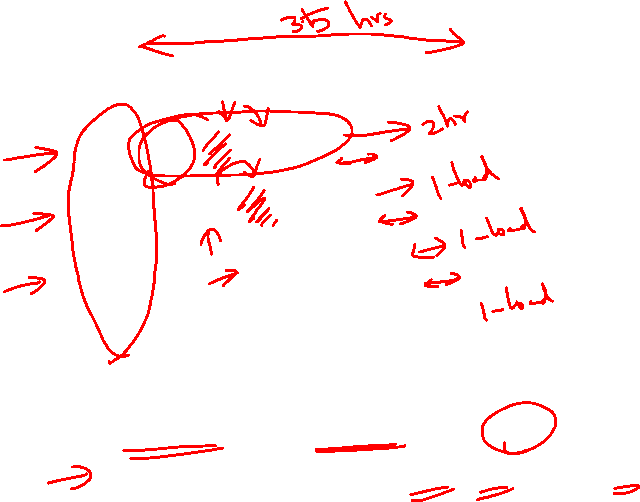 3.5 hrs
2hr
1-load
1-load
1-load